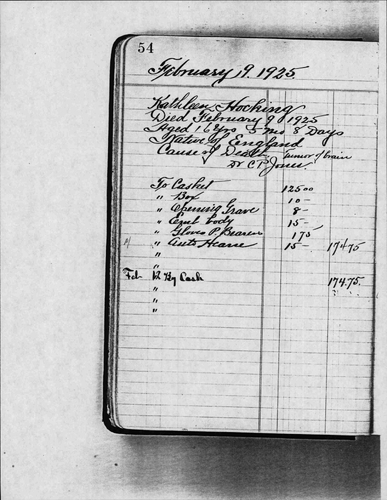 54
February 9. 1925
Kathleen Hocking
Died February 9 1925
Aged 16 yrs 5 mo 8 Days
Native of England
Cause of Death Tumor of brain
Dr C P Jones
To Casket 125 00
" Box 10 -
" Opening Grave 8 -
" Embl body 15 -
" Gloves P. Bearers 1 75
" Auto Hearse 15 - 174.75
"
"
Feb By Cash 174.75.
"
"